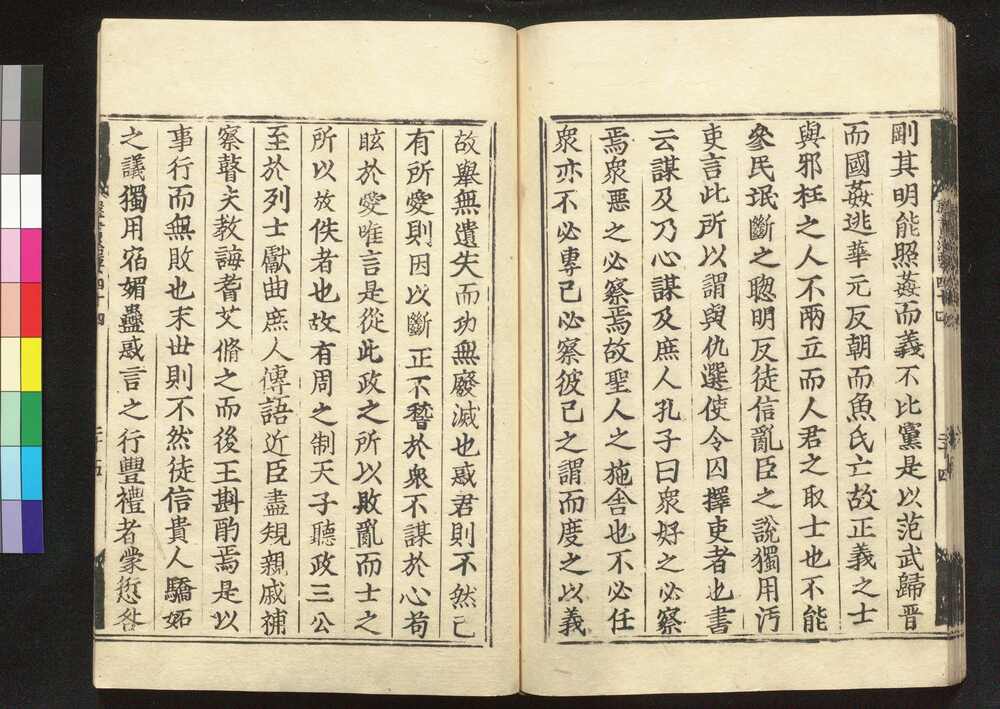 剛其明能照姦而義不比黨是以范武歸晋
而國姦逃華元反朝而魚氏亡故正義之士
與邪枉之人不兩立而人君之取士也不能
參民氓斷之聦明反徒信亂臣之說獨用汚
吏言此所以謂與仇選使令囚擇吏者也書
云謀及乃心謀及庶人孔子曰衆好之必察
焉衆惡之必察焉故聖人之施舎也不必任
衆亦不必專己必察彼己之謂而度之以義
故舉無遺失而功無廢滅也惑君則不然己
有所愛則因以斷正不稽於衆不謀於心苟
眩於愛唯言是從此政之所以敗亂而士之
所以放佚者也故有周之制天子聽政三公
至於列士獻曲庶人傳語近臣盡規親戚補
察瞽史教誨耆艾脩之而後王斟酌焉是以
事行而無敗也末世則不然徒信貴人驕妬
之議獨用宿媚蠱惑言之行豐禮者蒙愆咎